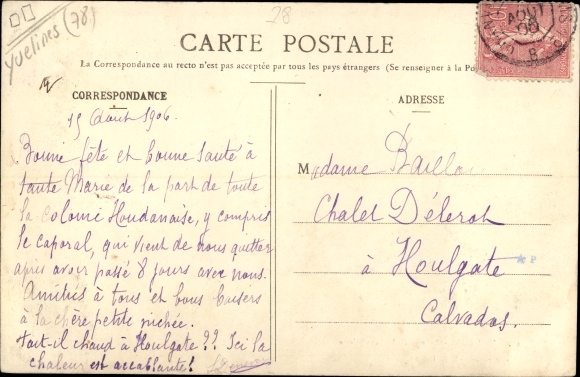 Yvelines (78)
28
CARTE POSTALE
La Correspondance au recto n'est pas acceptée par tous les pays étrangers (Se renseigner à la Po
CORRESPONDANCE
15 Août 1906.
Bonne fête et bonne santé à
tante Marie de la part de toute
la colonie Houdanaise, y compris
le caporal, qui vient de nous quitter
après avoir passé 8 jours avec nous.
Amitiés à tous et bons baisers
à la chère petite nichée.
Fait-il chaud à Houlgate ?? Ici la
chaleur est accablante !
ADRESSE
Madame
Chalet Délerot
à Houlgate
Calvados.
AOUT